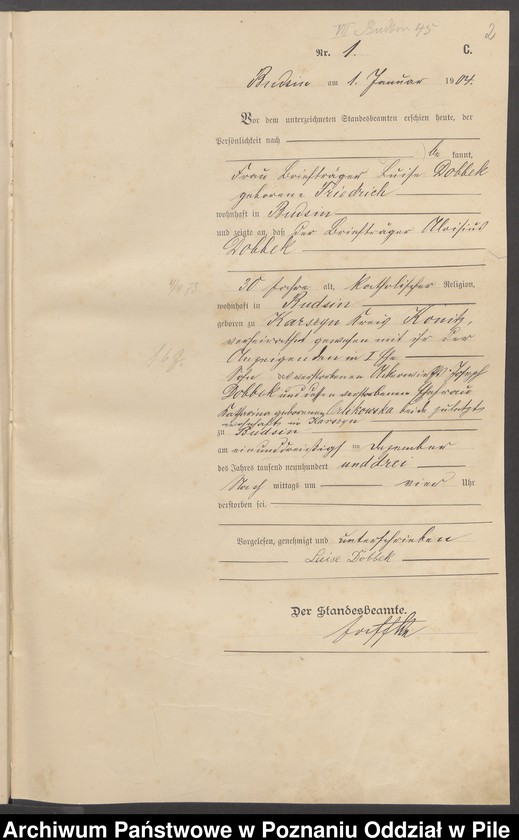 VII Budsin 45
2
Nr. 1. C.
Budsin am 1. Januar 1904.
Vor dem unterzeichneten Standesbeamten erschien heute, der
Persönlichkeit nach
be kannt,
Frau Briefträger Luise Dobbek
geborene Friedrich
wohnhaft in Budsin
und zeigte an, daß der Briefträger Aloisius
Dobbek
30 Jahre alt, katholischer Religion,
wohnhaft in Budsin
geboren zu Karszyn Kreis Konitz,
verheirathet gewesen mit ihr der
Anzeigenden in I Ehe
Sohn des verstorbenen Joseph
Dobbek und dessen verstorbenen Ehefrau
Katharina geborenen beide zuletzt
wohnhaft in Karszyn
zu Budsin
am einunddreißigsten Dezember
des Jahres tausend neunhundert und drei
Nach mittags um vier Uhr
verstorben sei.
Vorgelesen, genehmigt und unterschrieben
Luise Dobbek
Der Standesbeamte.
Archiwum Państwowe w Poznaniu Oddział w Pile